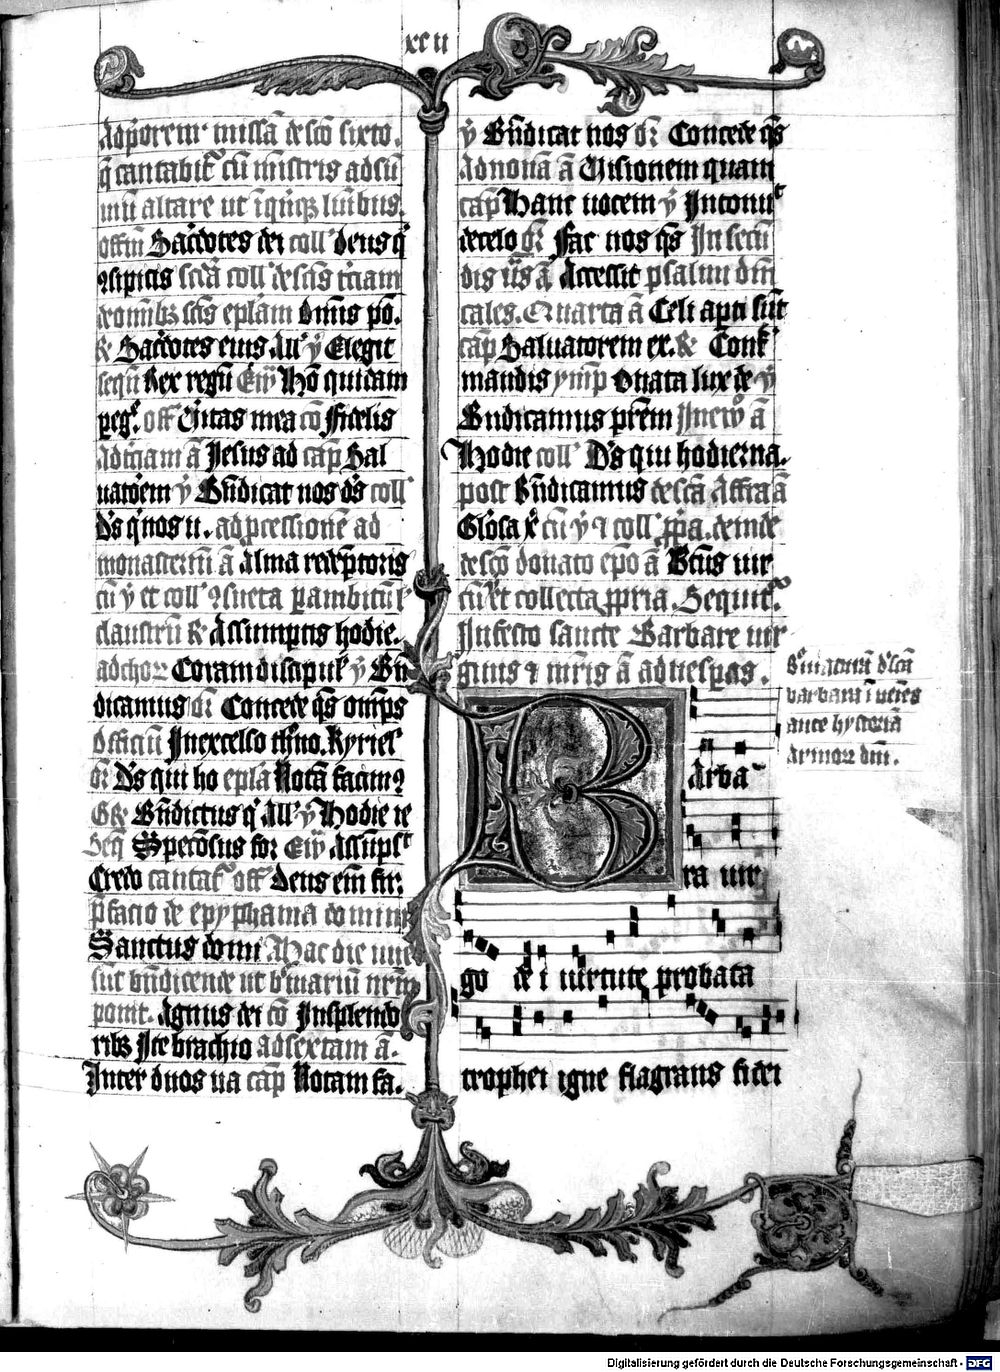 xcii
Ad p̄orem missā de sc̄o sixto.
q̄ cantabit̄ cū mīstris ad sū
mū altare ut ī q̇nq̢ luībus.
offm̄ Sac̄dotes dei coll' deus q'
ꝯspicis sc̄dā coll' de sc̄is tc̄iam
de omībꝫ sc̄is ep̄lam Om̄is pō.
R̄ Sac̄dotes eius All' v̄ Elegit
seqū Rex regū Ew̄ Hō quidam
peg̃. off Vītas mea cō Fidelis
Ad tc̄iam ā Jesus ad cap̄ Sal
uatōem v̄ Bn̄dicat nos d's coll'
D's q' nos ii. ad ꝓcessionē ad
monasteriū ā Alma redēptoris
cū v̄ et coll' ꝯsueta p ambitū ⁊
claustrū R̄ Assumptis hodie.
ad choꝝ Coram discipul' v̄ Bn̄
dicamus or̄ Concede q̄s om̄ps
Officiū In excelso th'no. Kyriel'
or̄ D's qui ho ep̄la Notā facim⁹
Gr̄ Bn̄dictus q' All' v̄ Hodie re
Seq̄ Speciosus for Ew̄ Assūpsᵗ
Credo cantat̄ off Deus em̄ fir.
p̄facio de epyphania domini
Sanctus domi Hac die uue
sūt bn̄dicende ut b'uiariū nr̄m
ponit. Agnus dei cō In splendo
ribꝫ Ite brachio ad sextam ā.
Inter duos ua cap̄ Notam fa.
v̄ Bn̄dicat nos or̄ Concede q̄s
Ad nonā ā Visionem quam
cap̄ Hanc uocem v̄ Intonuᵗ
de celo or̄ Fac nos q̄s In secū
dis v̄is ā Accessit psalmi dn̄i
cales. Quarta ā Celi apti sūt
cap̄ Saluatorem ex. R̄ Conf'
mandis ymp̄ O nata lux de v̄
Bn̄dicamus pr̄em In ew̄ ā
Hodie coll' D's qui hodierna.
post Bn̄dicamus de scā Affra ā
Glōsa x̄ cū v̄ ⁊ coll' ꝓpa. deinde
de sc̄o donato ep̄o ā Bt̄us uir
cū v̄ et collecta ꝓpria. Sequit̄.
In festo sancte Barbare uir
ginis ⁊ mr̄is ā ad uesperas.
Barba
ra uir
go dei uirtute probata
trophei igne flagrans fidei
barbaram
ante hystoriā
Armoꝝ dn̄i.
Digitalisierung gefördert durch die Deutsche Forschungsgemeinschaft - DFG